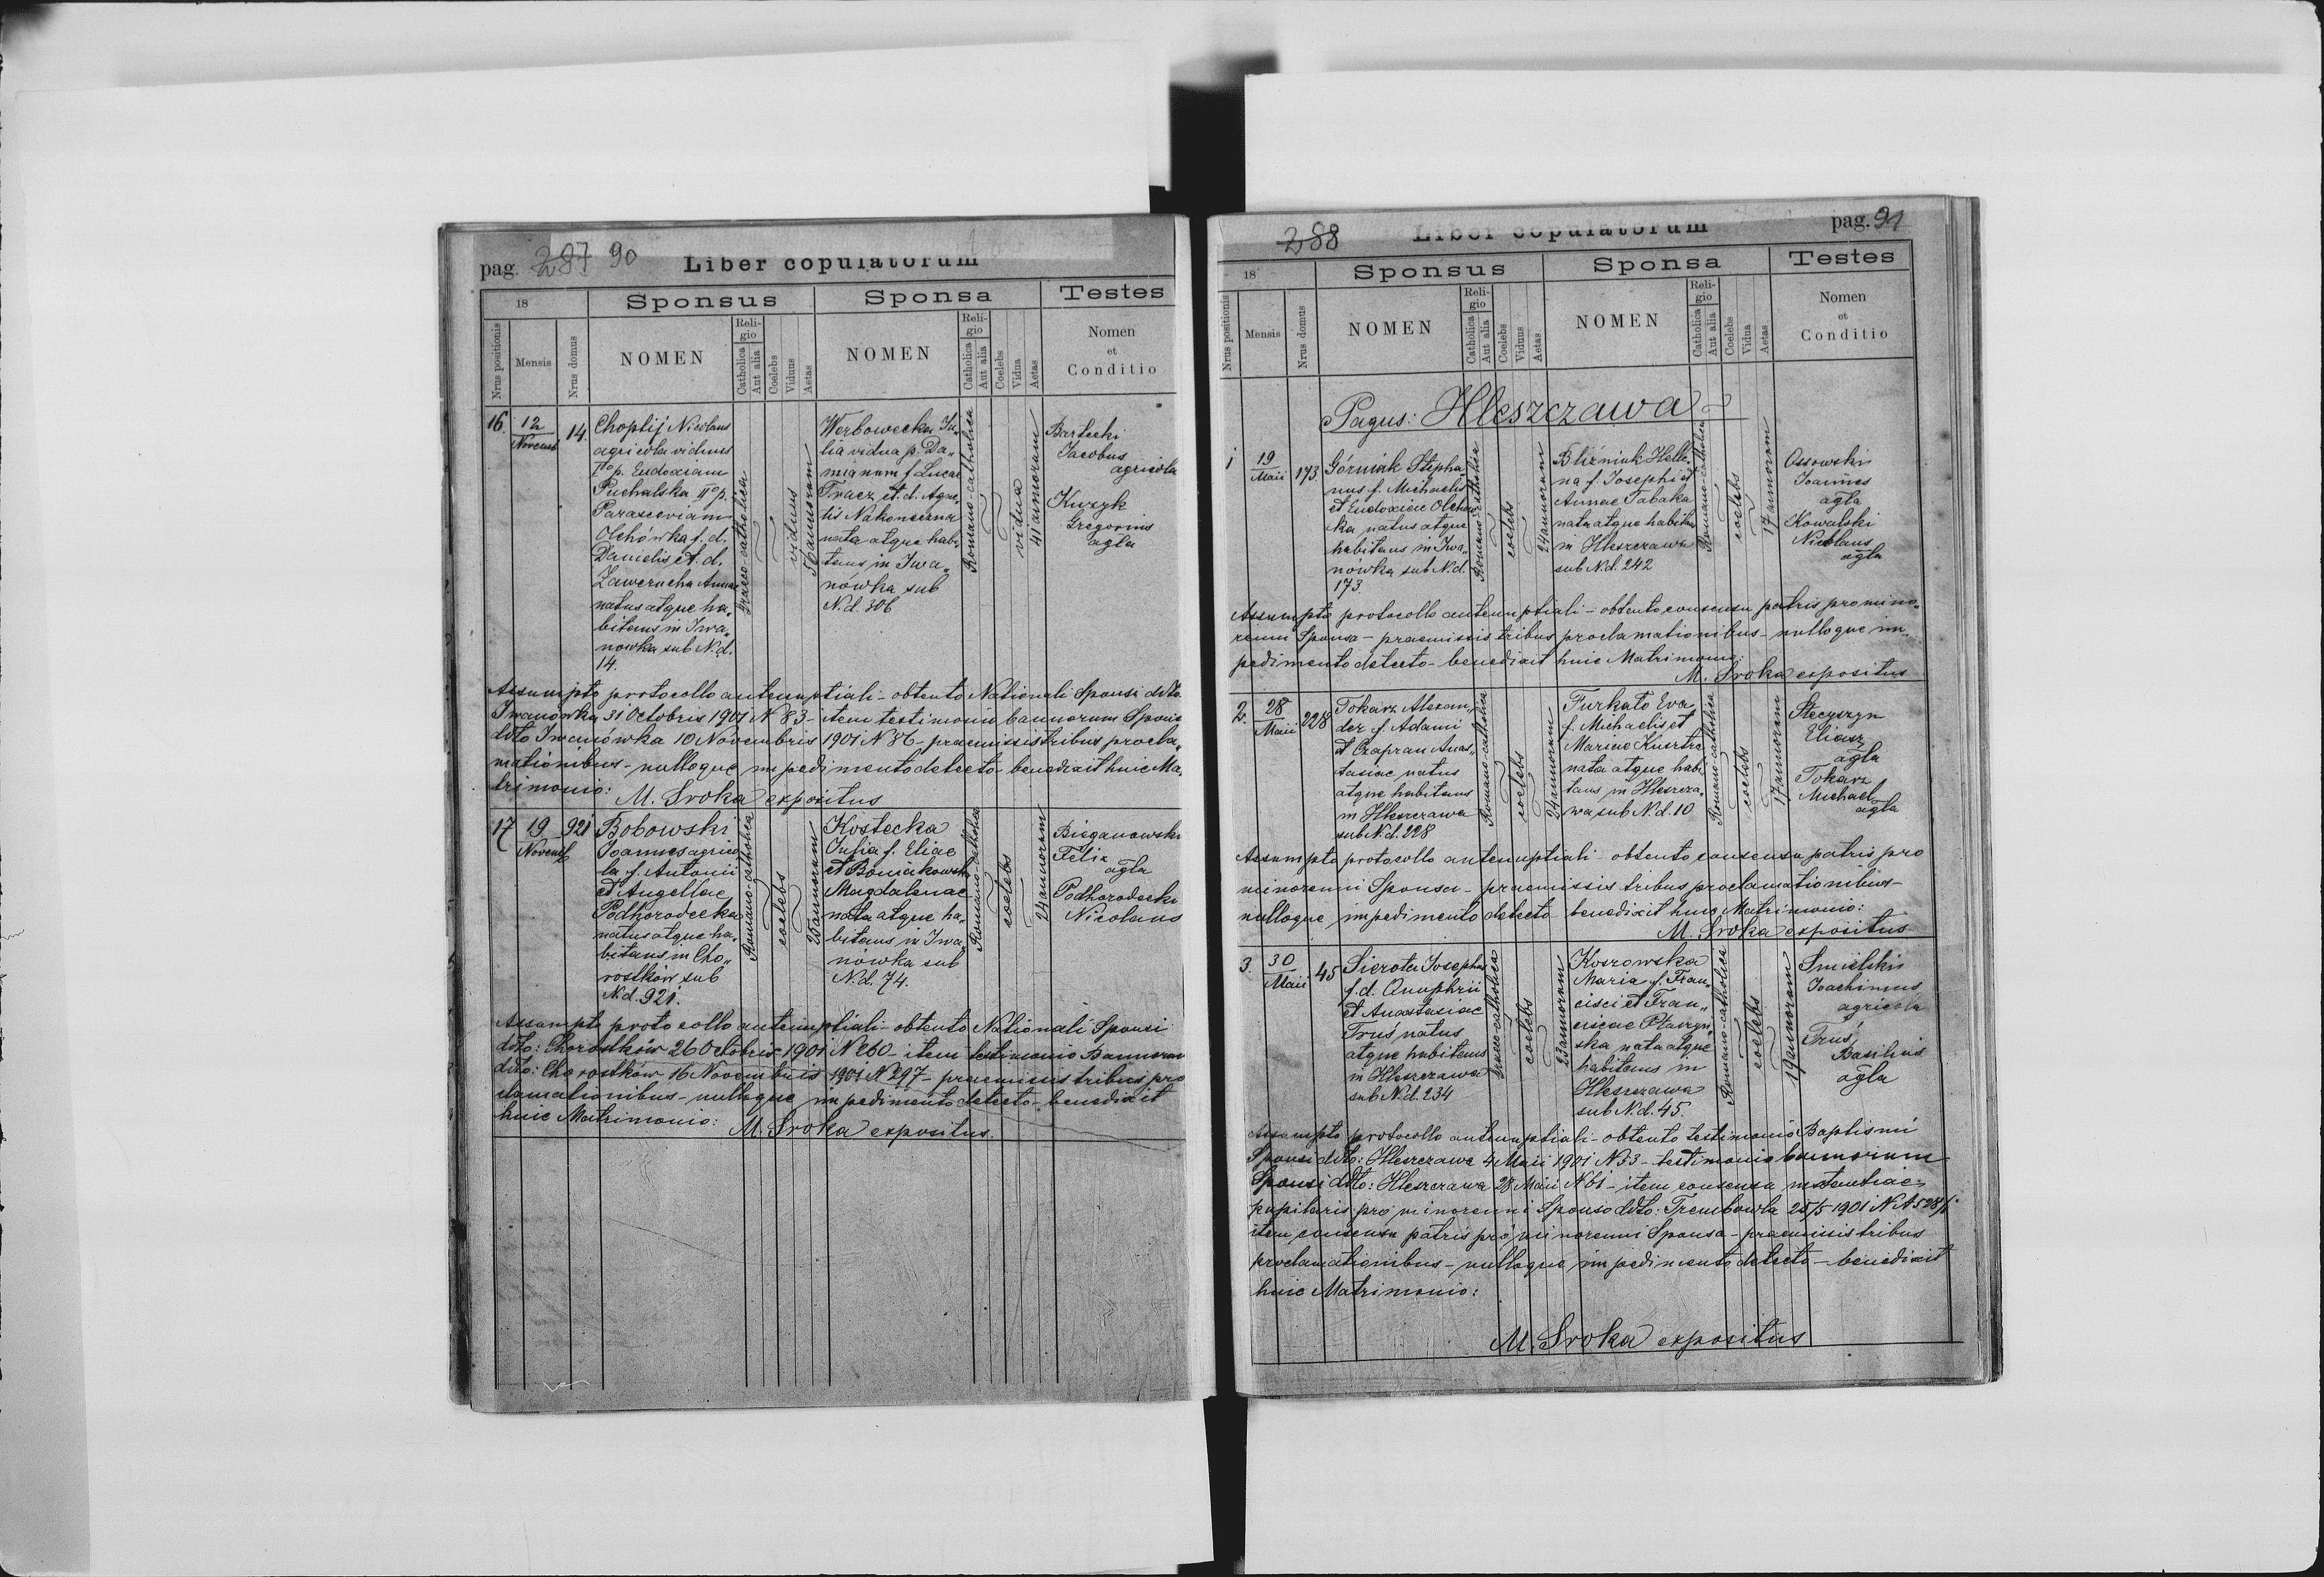 pag. 287 90
Liber copulatorum
18
Sponsus
Sponsa
Testes
Nrus positionis
Mensis
Nrus domus
NOMEN
Reli-
gio
Catholica
Aut alia
Coelebs
Viduus
Aetas
NOMEN
Reli-
gio
Catholica
Aut alia
Coelebs
Vidua
Aetas
Nomen
et
Conditio
16.
12
Novemb
14.
Choptij Nicolaus
agricola viduus
Ito p. Eudoxiam
Puchalska IIo p.
Parasceviam
Olchówka f. d.
Danielis et. d.
Zawerucha Annae
natus atque ha„
bitans in Iwa„
nowka sub N. d.
14.
Graeco-catholica
viduus
annorum
Werbowecka Ju„
lia vidua p. Da„
mianum f. Lucae
Tracz et. d. Agne„
tis Nakoneczna
nata atque habi„
tans in Iwa„
nówka sub
N. d. 306
Romano-catholica
vidua
41 annorum
Bartecki
Jacobus
agricola
Kuszyk
Gregorius
agla
Assumpto protocollo antenuptiali - obtento Nationali Sponsi ddto.
Iwanówka 31 Octobris 1901 N 83 - item testimonio bannorum Sponsi
ddto Iwanówka 10 Novembris 1901 N 86 - praemissis tribus procla„
mationibus - nulloque impedimento detecto - benedixit huic Ma„
trimonio:
M. Sroka expositus
17
19
Novemb
921
Bobowski
Joannes agrico
la f. Antonii
et Angellae
Podhorodecka
natus atque ha„
bitans in Cho„
rostków sub
N. d. 921.
Romano-catholica
coelebs
25 annorum
Kostecka
f. Eliae
et Bomakowska
Magdalenae
nata atque ha„
bitans in Iwa„
nówka sub
N. d. 74.
Romano-catholica
coelebs
24 annorum
Bieganowski
Felix
agla
Podhorodecki
Nicolaus
Assumpto protocollo antenuptiali - obtento Nationali Sponsi
ddto: Chorostków 26 Octobris 1901 N 260 - item testimonio Bannorum
ddto: Chorostków 16 Novembris 1901 N 297 - praemissis tribus pro
clamationibus - nulloque impedimento detecto - benedixit
huic Matrimonio:
M. Sroka expositus.
288
Liber copulatorum
pag. 91
18
Sponsus
Sponsa
Testes
Nrus positionis
Mensis
Nrus domus
NOMEN
Reli-
gio
Catholica
Aut alia
Coelebs
Viduus
Aetas
NOMEN
Reli-
gio
Catholica
Aut alia
Coelebs
Vidua
Aetas
Nomen
et
Conditio
Pagus: Hleszczawa
1
19
Maii
173
Górniak Stepha„
nus f. Michaelis
et Eudoxiae Olchow
ka natus atque
habitans in Iwa„
nowka sub N. d.
173
Romano-catholica
coelebs
24 annorum
Bliźniuk Hele„
na f. Josephi et
Annae Tabaka
nata atque habitans
in Hleszczawa
sub N. d. 242
Romano-catholica
coelebs
17 annorum
Ossowski
Joannes
agla
Kowalski
Nicolaus
agla
Assumpto protocollo antenuptiali - obtento consensu patris pro mino„
renni Sponsa - praemissis tribus proclamationibus - nulloque im„
pedimento detecto - benedixit huic Matrimonio:
M. Sroka expositus
2.
28
Maii
228
Tokarz Alexan„
der f. Adami
et Czapran Anas„
tasiae natus
atque habitans
in Hleszczawa
sub N. d. 228
Romano-catholica
coelebs
24 annorum
Furkalo Eva
f. Michaelis et
Mariae
nata atque habi„
tans in Hleszcza„
wa sub N. d. 10
Romano-catholica
coelebs
17 annorum
Stecyszyn
Eliasz
agla
Tokarz
Michael
agla
Assumpto protocollo antenuptiali - obtento consensu patris pro
minorenni Sponsa - praemissis tribus proclamationibus -
nulloque impedimento detecto benedixit huic Matrimonio:
M. Sroka expositus
3.
30
Maii
45
Sierota Josephus
f. d. Onuphrii
et Anastasiae
Truś natus
atque habitans
in Hleszczawa
sub N. d. 234
Graeco-catholica
coelebs
23 annorum
Koszowska
Maria f. Fran„
cisci et Fran„
ciscae Ptaszyń„
ska nata atque
habitans in
Hleszczawa
sub N. d. 45.
Romano-catholica
coelebs
19 annorum
Smielski
Joachimus
agricola
Truś
Basilius
agla
Assumpto protocollo antenuptiali - obtento testimonio Baptismi
Sponsi ddto: Hleszczawa 4 Maii 1901 N 33 - testimonio bannorum
Sponsi ddto: Hleszczawa 28 Maii N 61 - item consensu instantiae
pupilaris pro minorenni Sponso ddto: Trembowla 25/5 1901
item consensu patris pro minorenni Sponsa - praemissis tribus
proclamationibus - nulloque impedimento detecto - benedixit
huic Matrimonio:
M. Sroka expositus